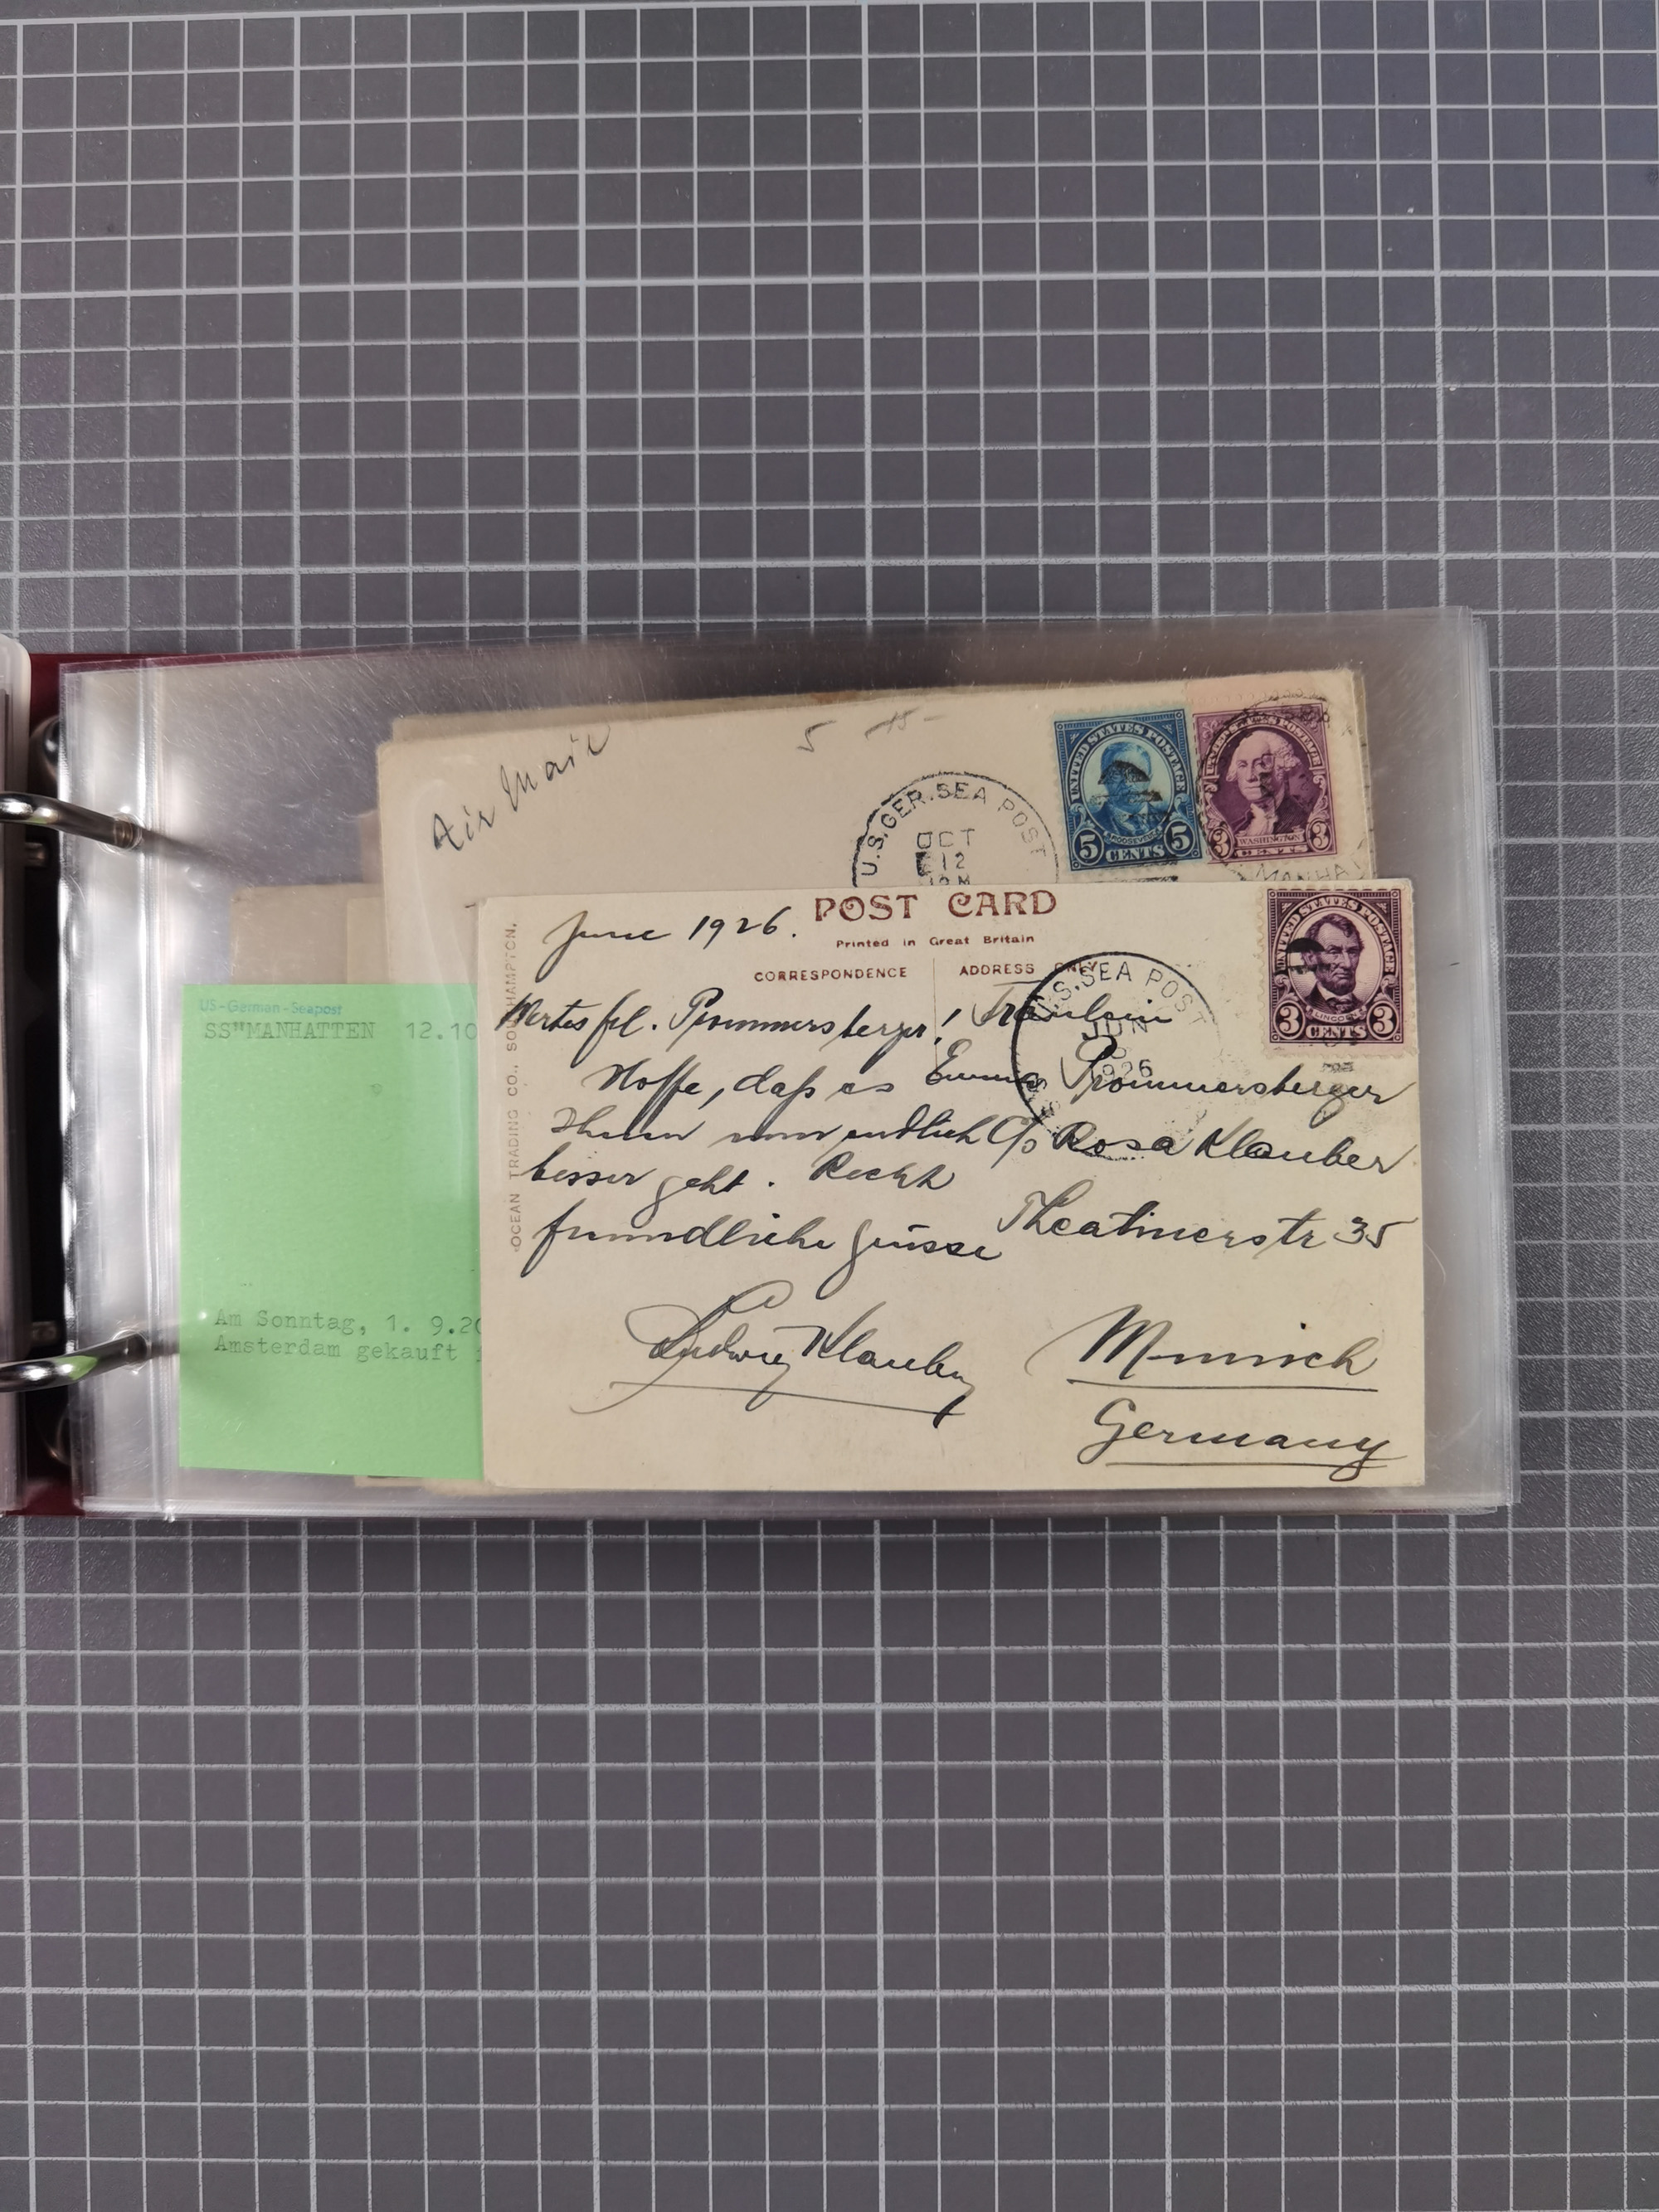 Air Mail
5 -15-
U.S.GER.SEA POST
OCT
12
UNITED STATES POSTAGE
ROOSEVELT
5 CENTS 5
UNITED STATES POSTAGE
WASHINGTON
3 CENTS 3
MANHA
US-German-Seapost
SS"MANHATTEN 12.10
Am Sonntag, 1. 9.20
Amsterdam gekauft
POST CARD
Printed in Great Britain
CORRESPONDENCE
ADDRESS ONLY
OCEAN TRADING CO., SOUTHAMPTON.
June 1926.
Wertes frl. Prommersberger!
Hoffe, daß es
Ihnen nun endlich
besser geht. Recht
freundliche Grüsse
Ludwig Klauber
Fräulein
Emma Prommersberger
c/o Rosa Klauber
Theatinerstr 35
Munich
Germany
U.S.SEA POST
JUN
1926
UNITED STATES POSTAGE
LINCOLN
3 CENTS 3